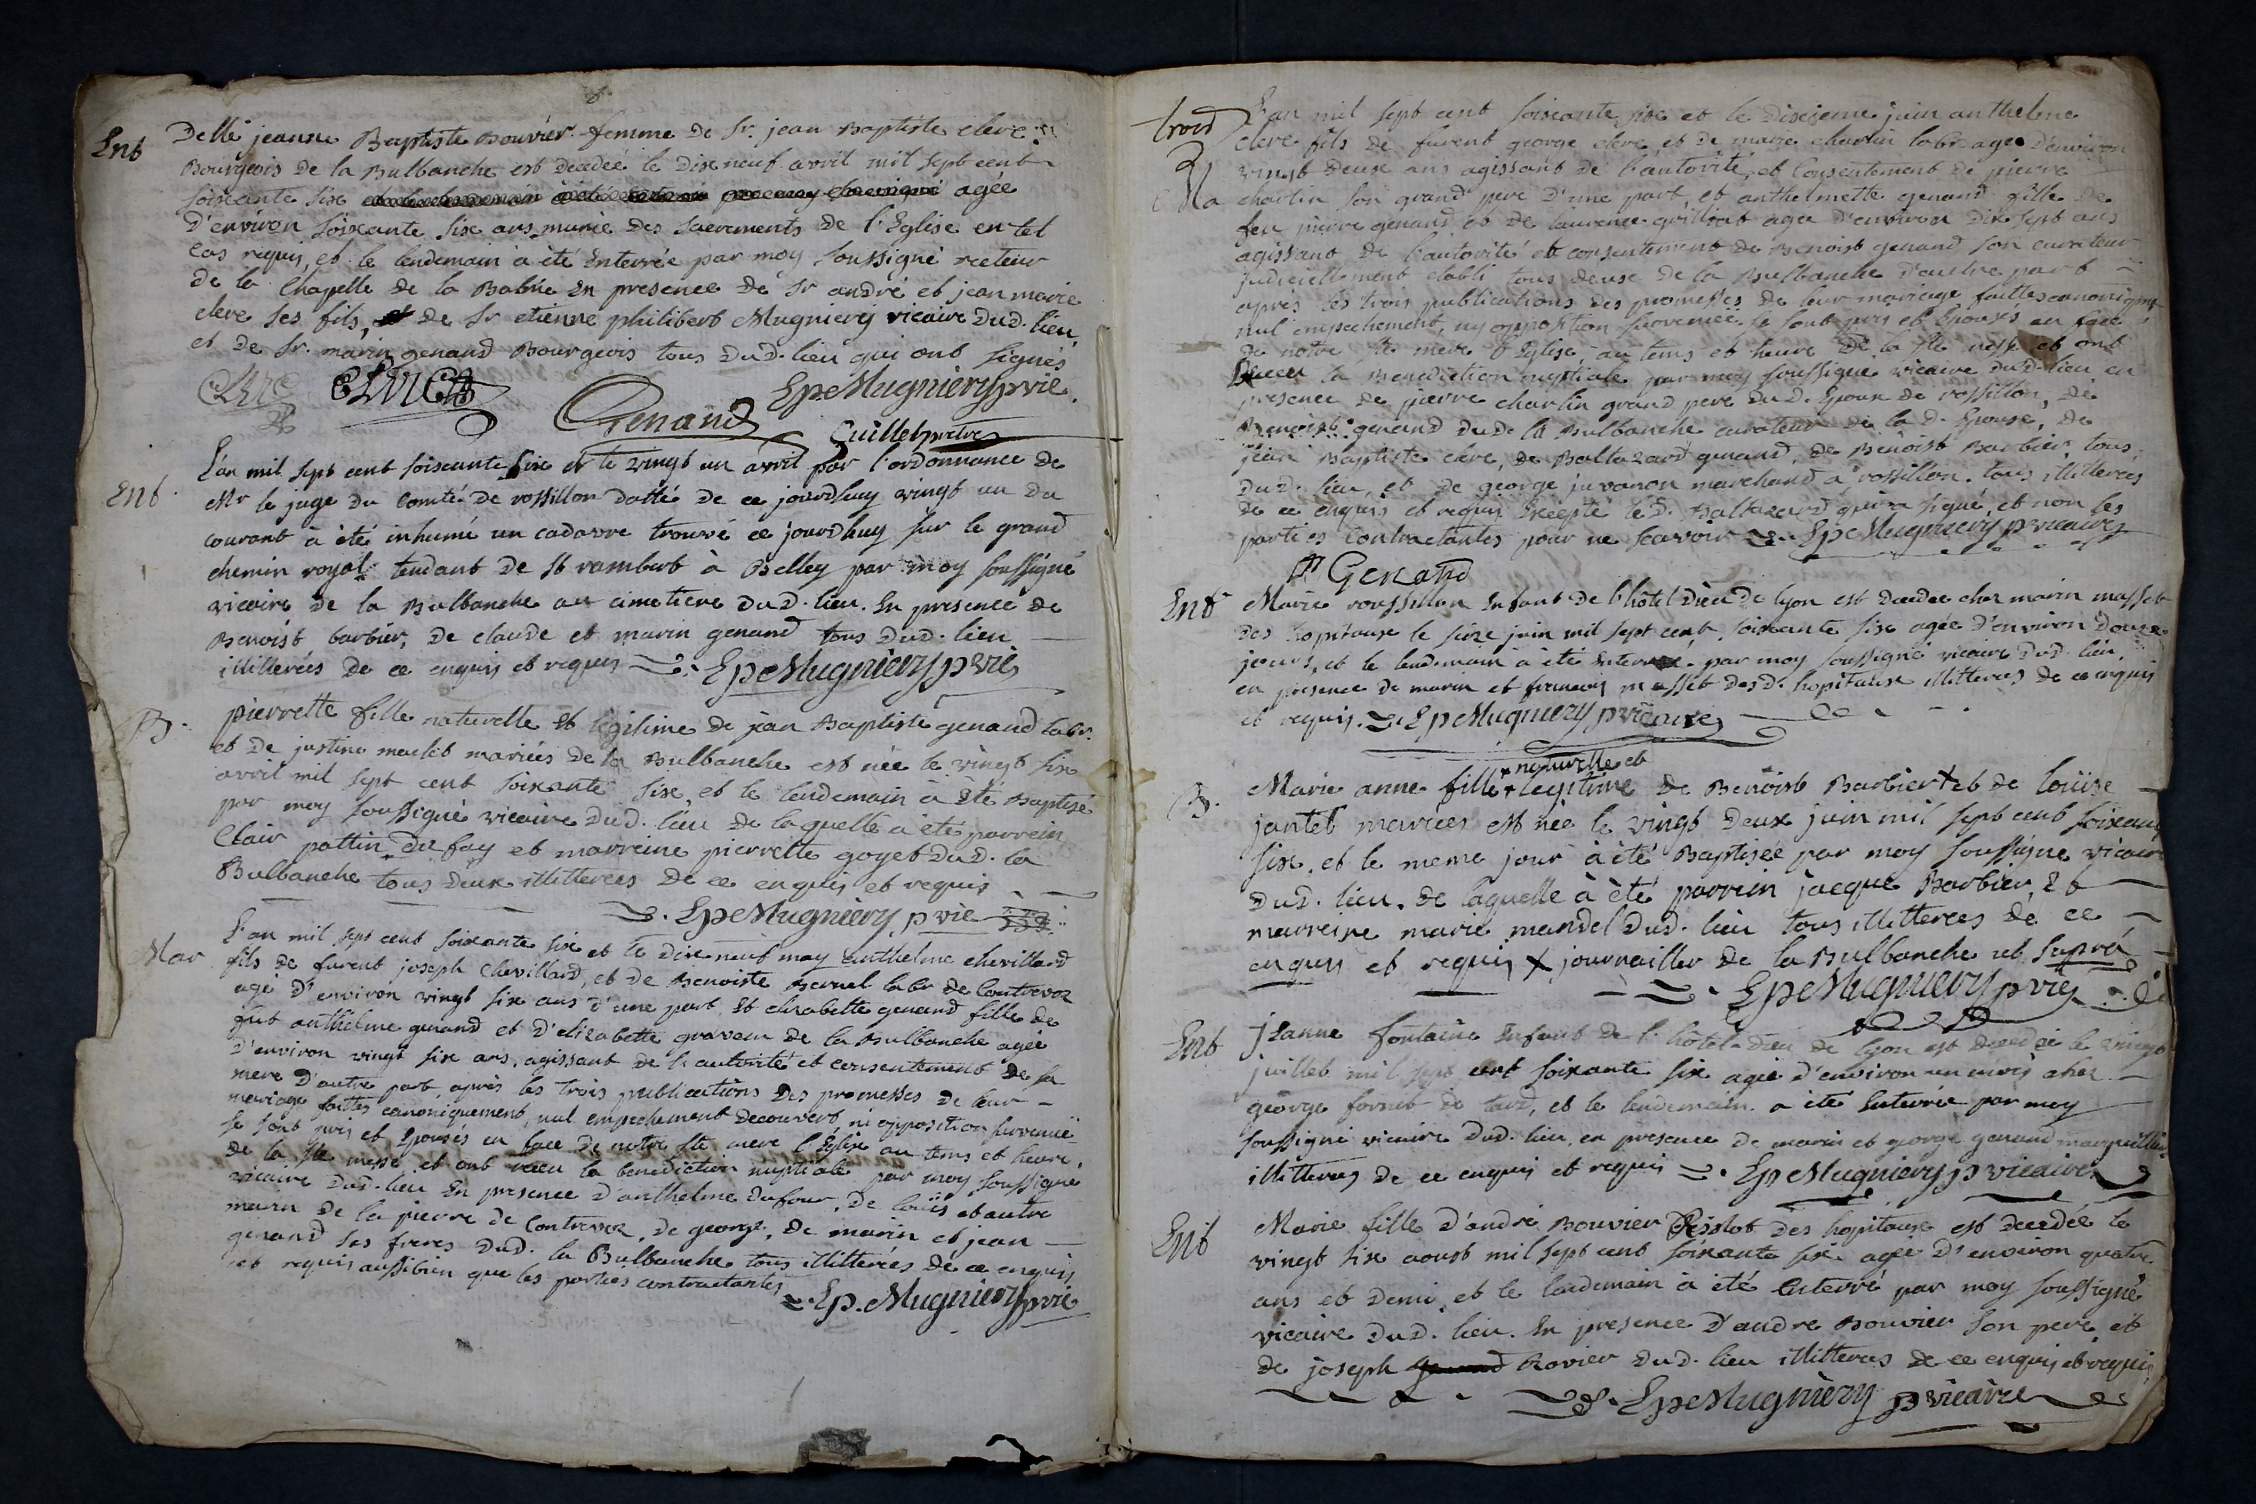 Ent
Delle jeanne Baptiste Bouvier femme de Sr. jean Baptiste clerc
Bourgeois de la Bulbanche est decedeé le dix neuf avril mil sept cent
soixante six agée
d'environ soixante six ans munie des Sacrements de l'Eglise en tel
cas requis, et le lendemain à été Enterrée par moy soussigné recteur
de la Chapelle de la Balme En presence de Sr andré et jean marie
clerc ses fils, de Sr etienne philibert Mugniery vicaire dud. lieu,
et de Sr. marin genand Bourgeois tous dud. lieu qui ont signés
CLERC CLERC EpeMugniery pvic.
Genand Guillet
Ent.
L'an mil sept cent soixante six et le vingt un avril par l'ordonnance de
Mr le juge du Comté de rossillon dattée de ce jourdhuy vingt un du
courant à été inhumé un cadavre trouvé ce jourdhuy sur le grand
chemin royal tendant de St rambert à Belley par moy soussigné
vicaire de la Bulbanche au cimetiere dud. lieu. En presence de
Benoist barbier, de claude et marin genand tous dud. lieu
illitterés de ce enquis et requis EpeMugniery pvic
B.
pierrette fille naturelle et legitime de jean Baptiste genand labr.
et de justine mariés de la Bulbanche est née le vingt six
avril mil sept cent soixante six, et le lendemain à été Baptisé
par moy soussigné vicaire dud. lieu de laquelle à été parrein
Clair pattin du fay et marreine pierrette goyet dud. la
Bulbanche tous deux illitterés de ce enquis et requis
EpeMugniery, pvic
Mar
L'an mil sept cent soixante six et le dix neuf may anthelme chevillard
fils de furent joseph Chevillard, et de Benoiste labr de Contrevoz
agé d'environ vingt six ans d'une part et elizabette genand fille de
fut anthelme genand et d'elizabette de la Bulbanche agée
d'environ vingt six ans, agissant de l'autorité et consentement de sa
mere d'autre part, après les trois publications des promesses de leur
mariage faittes canoniquement, nul empechement decouvert, ni opposition survenüe
se sont pris et Epousés en face de notre Ste mere l'Eglise au tems et heure
de la Ste messe et ont recu la benediction nuptiale par moy soussigné
vicaire dud. lieu En presence d'anthelme dufour, de loüis et autre
marin de la pierre de Contrevoz, de george, de marin et jean
genand ses freres dud. la Bulbanche tous illitterés de ce enquis
et requis aussibien que les parties contractantes
Ep. Mugniery pvic
trois
L'an mil sept cent soixante six et le dixieme juin anthelme
clerc fils de furent george clerc et de marie charlin labr agé d'environ
vingt deux ans agissant de l'autorité, et Consentement de pierre
Ma
charlin son grand pere d'une part, et anthelmette genand fille de
feu pierre genand et de laurence agée d'environ dix sept ans
agissant de l'autorité et consentement de Benoist genand son curateur
judiciellement etabli tous deux de la Bulbanche d'autre part
après les trois publications des promesses de leur mariage faittes canoniqmt
nul empechement, ny opposition survenüe. Se sont pris et Epousés en face
de notre Ste mere l'Eglise, au tems et heure de la Ste messe et ont
receu la Benediction nuptiale par moy soussigné vicaire dud. lieu en
presence de pierre charlin grand pere dud. Epoux de rossillon, de
Benoist genand dud. la Bulbanche curateur de la d. Epouse, de
jean Baptiste clerc, de Baltazard genand, de Benoist Barbier, tous
dud. lieu, et de george juvanon marchand à rossillon, tous illitteres
de ce enquis et requis Excepté le d. Baltazard qui a signé, et non les
parties Contractantes pour ne scavoir EpeMugniery pvicaire
Genand
Ent
Marie roussillon Enfant de l'hôtel Dieu de lyon est decedee chez marin masset
des hopitaux le seize juin mil sept cent soixante six agée d'environ douze
jours, et le lendemain à été Enterrée par moy soussigné vicaire dud. lieu,
en presence de marin et francois masset desd. hopitaux illitteres de ce enquis
et requis. EpeMugniery pvicaire
naturelle et
B.
Marie anne fille + legitime de Benoist Barbier + et de loüise
jantet mariées est née le vingt deux juin mil sept cent soixante
six, et le meme jour à été Baptisée par moy soussigné vicaire
dud. lieu. de laquelle à été parrein jacque Barbier, Et
marreine marie mandel dud. lieu tous illitteres de ce
enquis et requis + journailler de la Bulbanche ut Supra
EpeMugniery pvic
Ent
jeanne fontaine Enfant de l'hôtel-dieu de lyon est decedée le vingt
juillet mil sept cent soixante six agée d'environ un mois chez
george fornet de tard, et le lendemain a été Enterrée par moy
soussigné vicaire dud. lieu, en presence de marin et george genand
illitterés de ce enquis et requis EpeMugniery pvicaire
Ent
Marie fille d'andré Bouvier des hopitaux est decedée le
vingt six aoust mil sept cent soixante six agée d'environ quatre
ans et demi, et le lendemain à été Enterré par moy soussigné
vicaire dud. lieu. En presence d'andre Bouvier son pere, et
de joseph Rovier dud. lieu illitteres de ce enquis et requis
EpeMugniery pvicaire